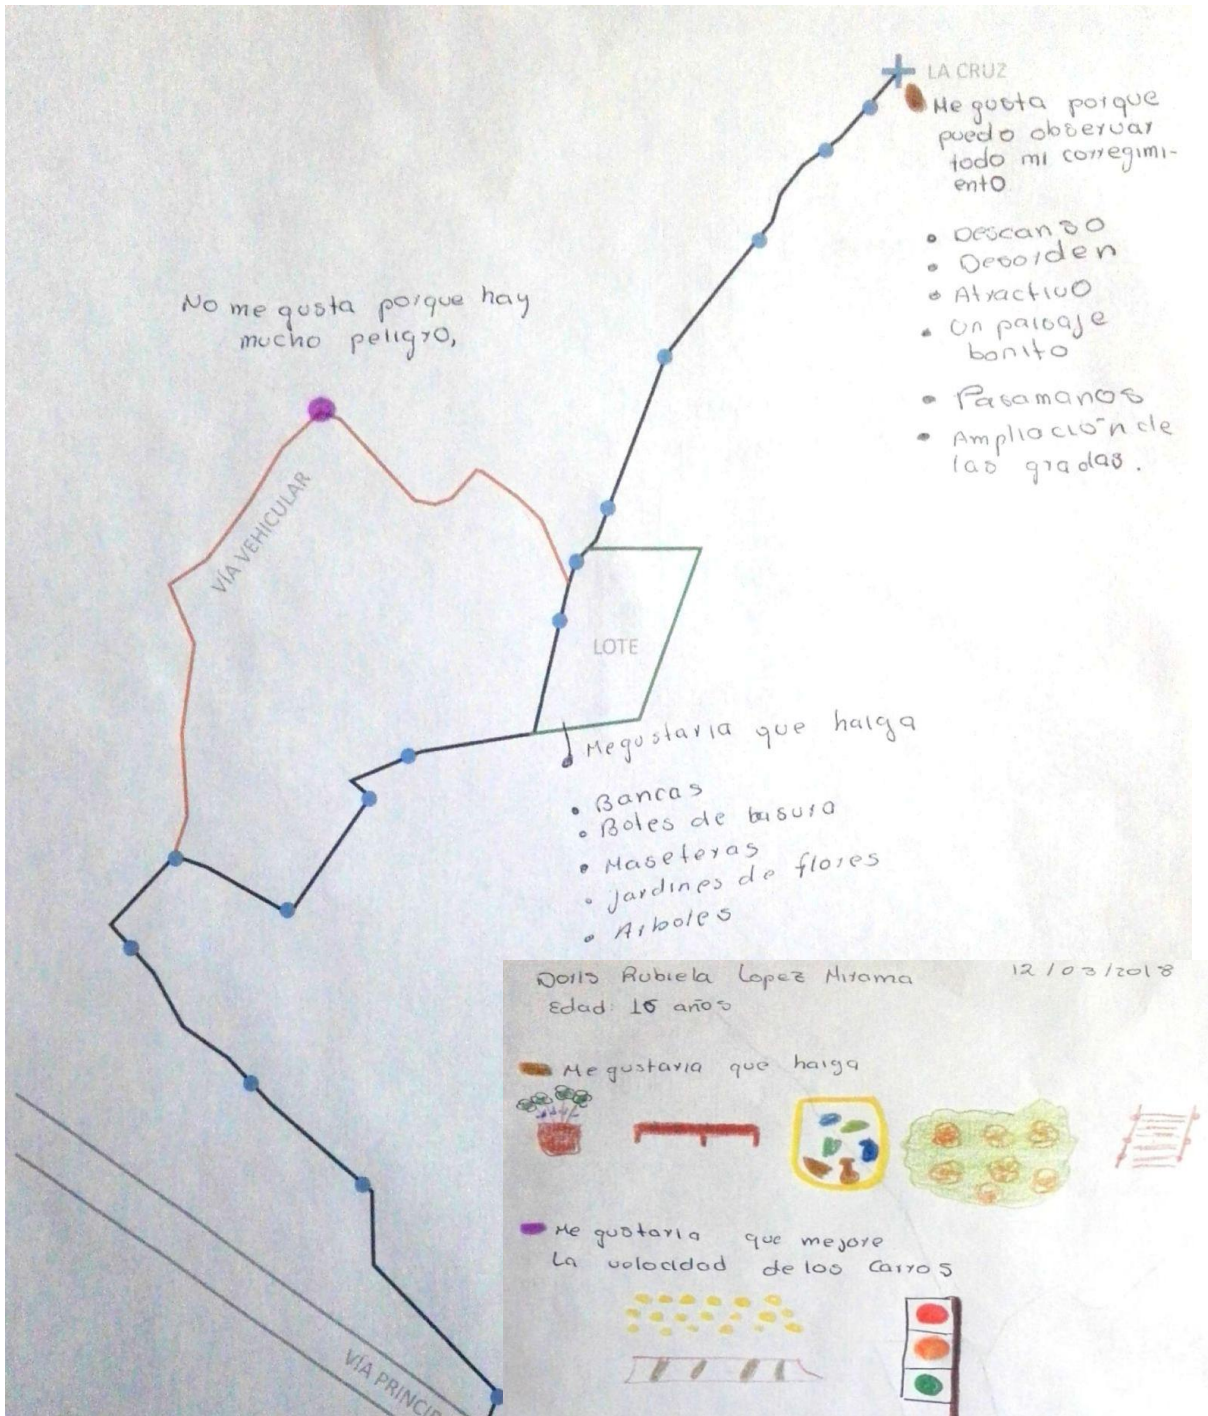 LA CRUZ
Me gusta porque
puedo observar
todo mi corregimi-
ento
• Descanso
• Desorden
• Atractivo
• Un paisaje
bonito
• Pasamanos
• Ampliación de
las gradas.
No me gusta porque hay
mucho peligro,
VÍA VEHICULAR
LOTE
Me gustaria que haiga
• Bancas
• Botes de basura
• Maseteras
• Jardines de flores
• Arboles
Doris Rubiela Lopez Mirama 12/03/2018
Edad: 16 años
Me gustaria que haiga
Me gustaria que mejore
La velocidad de los carros
VÍA PRINCIP